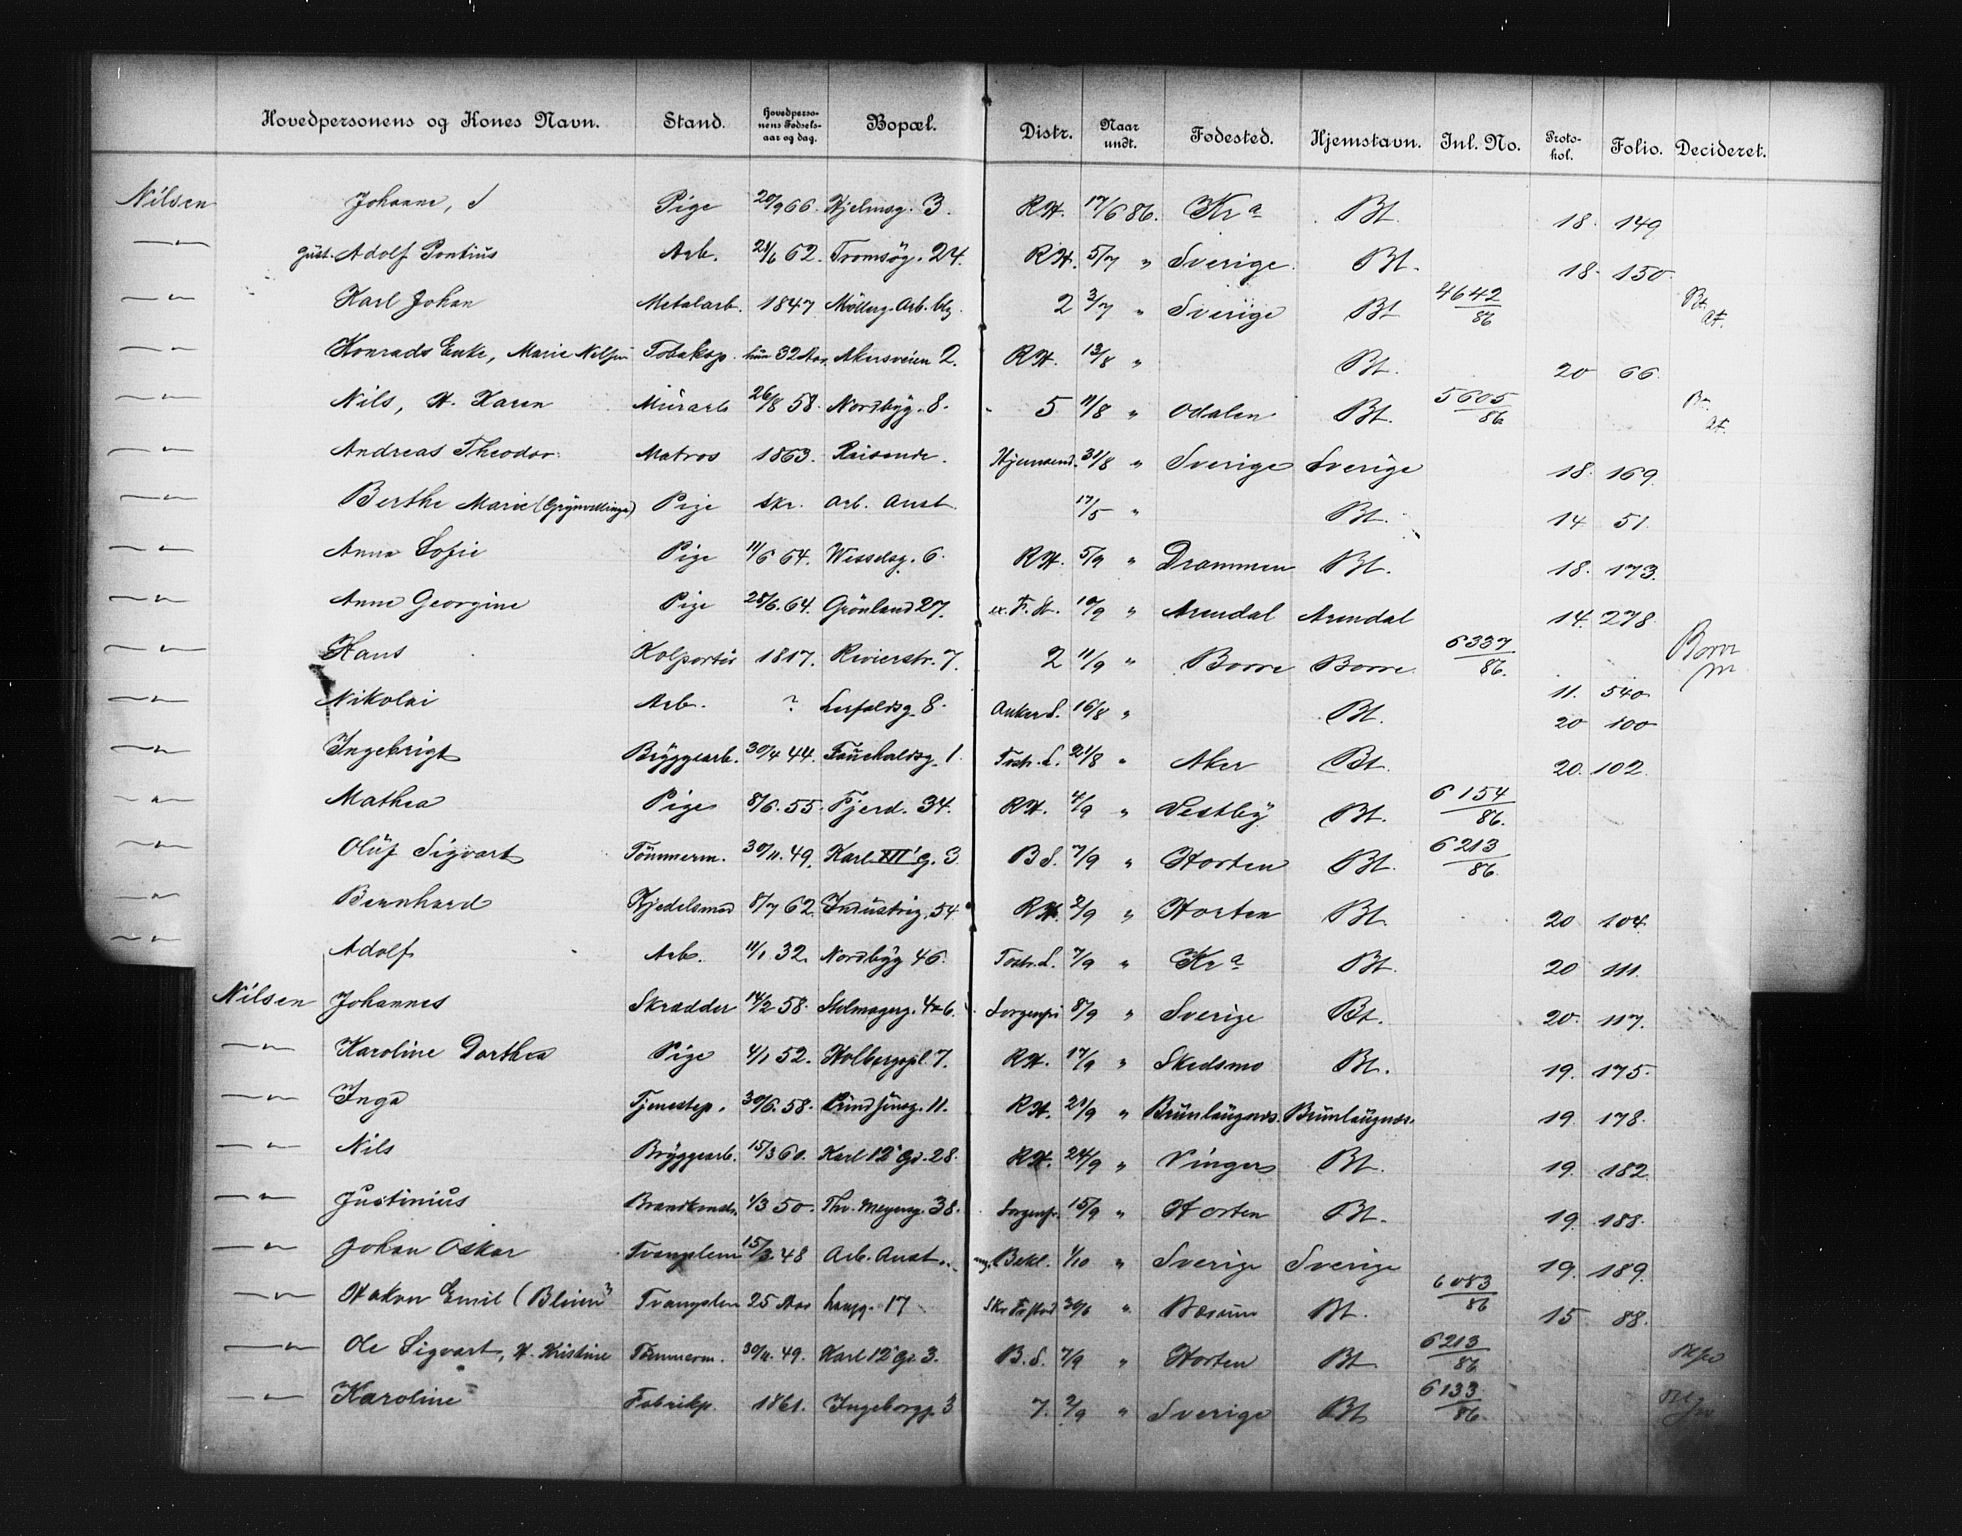 Hovedpersonens og Kones Navn. Stand. Hovedpersonens Fødselsaar og dag. Bopæl. Distr. Naar undt. Fødested. Hjemstavn. Inl. No. Protokol. Folio. Decideret.
Nilsen Johanne, S Pige 20/9 66. Hjelmsg. 3. RH. 17/6 86. Kra Bt. 18. 149
—"— Gust. Adolf Pontius Arb. 21/6 62. Tromsög. 24. RH. 5/7 " Sverige. Bt. 18. 150
—"— Karl Johan Metalarb. 1847 Möllerg. Arb. blg. 2 3/7 " Sverige Bt 4642/86 Bt. at.
—"— Konrads Enke, Marie Nilsen Tobaksp. hun 32 Aar. Akersveien 2. RH. 13/8 " Bt. 20 66.
—"— Nils, H. Karen Murarb 26/8 58. Nordbyg. 8. 5 11/8 " Odalen Bt. 5605/86 Bt. at.
—"— Andreas Theodor Matros 1863. Reisende. Hjemsend. 31/8 " Sverige Sverige 18. 169.
—"— Berthe Marie Pige skr. Arb. Anst. 17/5 " Bt. 14 51.
—"— Anna Sofie Pige 11/6 64. Wesselsg. 6. RH. 5/9 " Drammen Bt. 18. 173.
—"— Anne Georgine Pige 28/6. 64. Grönland 27. ex. F. H. 10/9 " Arendal Arendal 14. 278.
—"— Hans Kolportör 1817. Revierstr. 7. 2 11/9 " Borre Borre 6337/86. 11. 540 Borre
—"— Nikolai Arb. ? Lerfaldsg. 8. Anker S. 16/8 " Bt. 20 100
—"— Ingebrigt Bryggearb. 30/4 44. Fauchaldsg. 1. Tostr. L. 21/8 " Aker Bt. 20. 102.
—"— Mathea Pige 8/6. 55. Fjerd. 34. RH. 4/9 " Vestby Bt. 6154/86.
—"— Oluf Sigvart Tömmerm. 30/11. 49. Karl XII' G. 3 B S. 7/9 " Horten Bt. 6213/86.
—"— Bernhard Kjedelsmed 8/7 62 Industrig. 54 RH. 2/9 " Horten Bt. 20 104.
—"— Adolf Arb. 11/1 32. Nordbyg 46. Tostr. L. 7/9 " Kra Bt. 20 111.
Nilsen Johannes Skrædder 14/2 58. Stolmagerg. 4+6. Sorgenfri 8/9 " Sverige Bt. 20. 117.
—"— Karoline Dorthea Pige 4/1 52. Holbergspl. 7. RH. 17/9 " Skedsmo Bt. 19. 175.
—"— Inga Tjenestep. 30/6. 58. 11. RH. 21/9 " Brunlaugnæs. Brunlaugnæs. 19. 178.
—"— Nils Bryggearb. 15/3 60. Karl 12' G. 28. RH. 24/9 " Vinger Bt. 19. 182.
—"— Justinius Brandkonst. 1/3 50. Thv. Meyersg. 38. Sorgenfr. 15/9 " Horten Bt. 19. 188.
—"— Johan Oskar Tvangslem 15/3 48 Arb. Anst. Bekl. 1/10 " Sverige Sverige 19. 189.
—"— Hakon Emil Tvangslem 25 Aar 17 30/6 " Bærum Bt. 6083/86 15 88.
—"— Ole Sigvart, H. Kristine Tömmerm. 30/11. 49. Karl 12' G. 3. B. S. 7/9 " Horten Bt 6213/86
—"— Karoline Fabrikp. 1861. Ingeborgg. 3 7. 2/9 " Sverige Bt 6133/86.